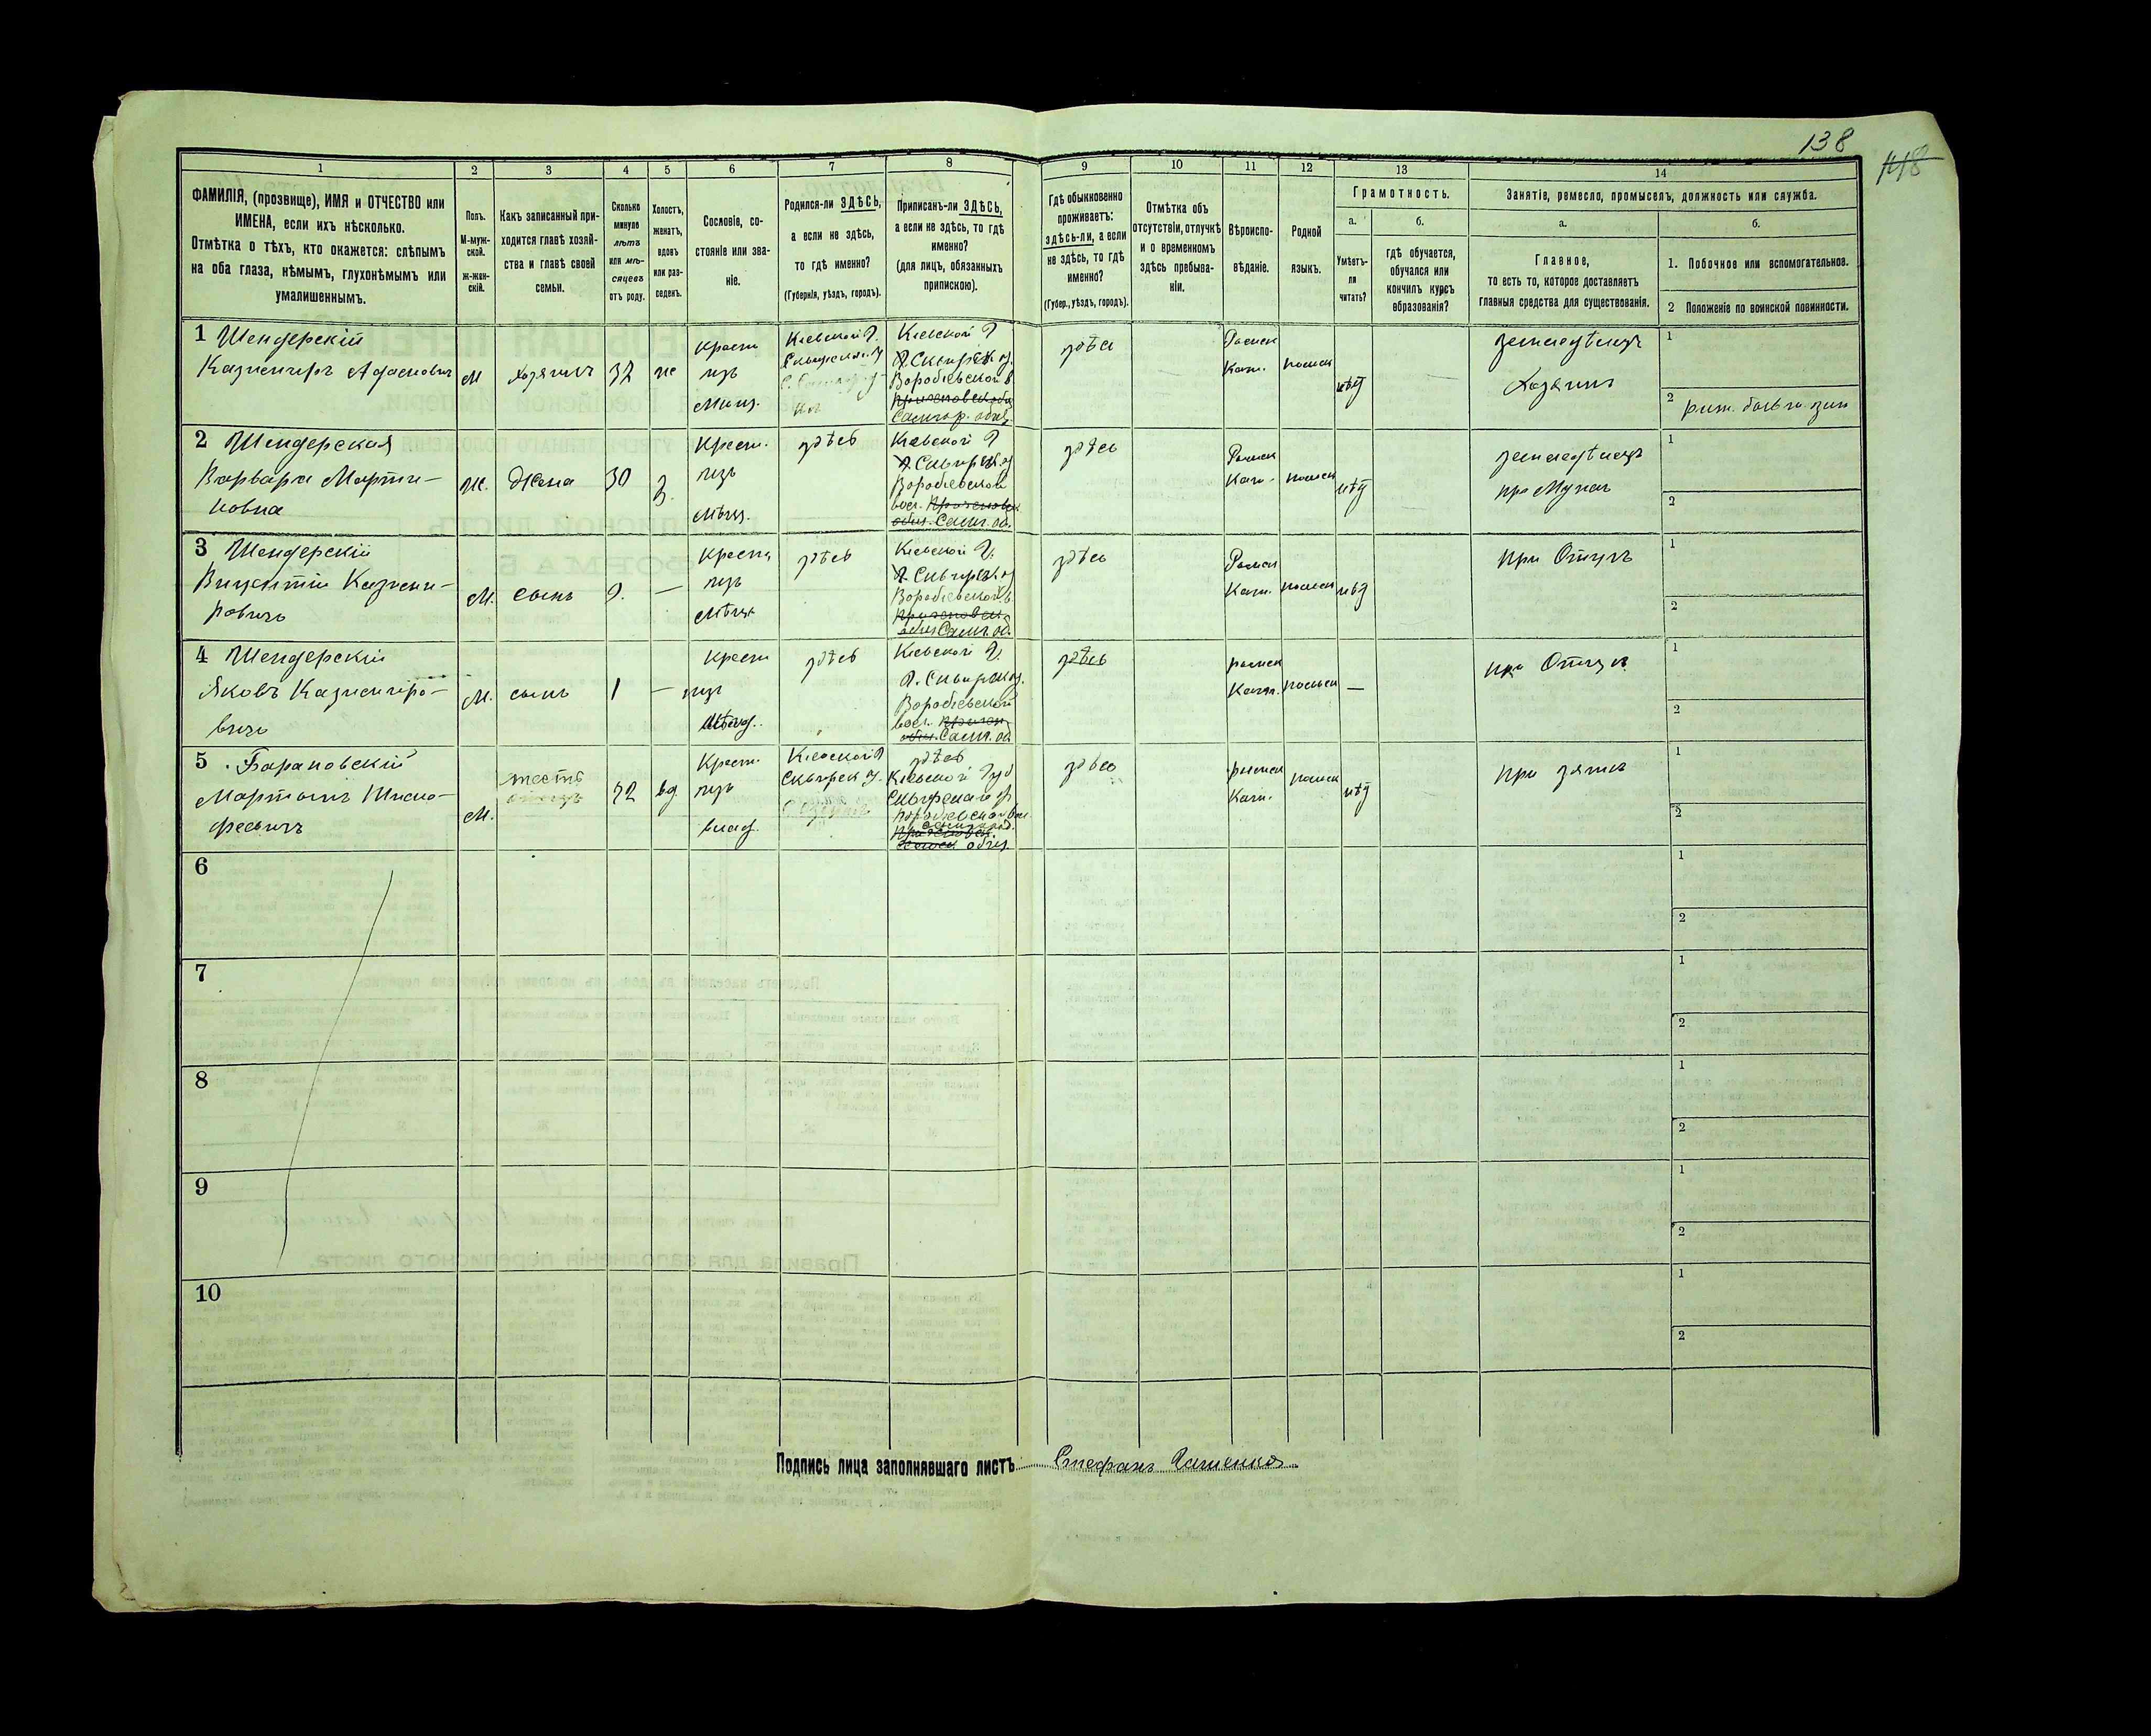 138
148
1
2
3
4
5
6
7
8
9
10
11
12
13
14
ФАМИЛІЯ, (прозвище), ИМЯ и ОТЧЕСТВО или
ИМЕНА, если ихъ нѣсколько.
Отмѣтка о тѣхъ, кто окажется: слѣпымъ
на оба глаза, нѣмымъ, глухонѣмымъ или
умалишеннымъ.
Полъ.
М-муж-
ской.
ж-жен-
скій.
Какъ записанный при-
ходится главѣ хозяй-
ства и главѣ своей
семьи.
Сколько
минуло
лѣтъ
или мѣ-
сяцевъ
отъ роду.
Холостъ,
женатъ,
вдовъ
или раз-
веденъ.
Сословіе, со-
стояніе или зва-
ніе.
Родился-ли ЗДѢСЬ,
а если не здѣсь,
то гдѣ именно?
(Губернія, уѣздъ, городъ).
Приписанъ-ли ЗДѢСЬ,
а если не здѣсь, то гдѣ
именно?
(для лицъ, обязанныхъ
припискою).
Гдѣ обыкновенно
проживаетъ:
здѣсь-ли, а если
не здѣсь, то гдѣ
именно?
(Губер., уѣздъ, городъ).
Отмѣтка объ
отсутствіи, отлучкѣ
и о временномъ
здѣсь пребыва-
ніи.
Вѣроиспо-
вѣданіе.
Родной
языкъ.
Грамотность.
а.
Умѣетъ-
ли
читать?
б.
гдѣ обучается,
обучался или
кончилъ курсъ
образованія?
Занятіе, ремесло, промыселъ, должность или служба.
а.
Главное,
то есть то, которое доставляетъ
главныя средства для существованія.
б.
1. Побочное или вспомогательное.
2 Положеніе по воинской повинности.
1 Шендерскій
Казимиръ Адамовичъ
М
хозяинъ
32
же
крест
изъ
Кіевской Г.
Кіевской Г
Сквирск. у.
Воробіевской в.
здѣсь
Римск
Кат.
польск
нѣт
земледѣлецъ
Хозяинъ
1
2
2 Шендерская
Варвара Марти-
новна
Ж.
Жена
30
з.
Крест.
изъ
здѣсь
Кіевской Г
Сквирск. у
Воробіевской
вол.
общ. Самг. об.
здѣсь
Римск
Кат.
польск
нѣт
земледѣлецъ
при Мужѣ
1
2
3 Шендерскій
Викентій Казими-
ровичъ
М.
сынъ
9.
—
крест
изъ
здѣсь
Кіевской Г.
Сквирск. у
Воробіевской в.
здѣсь
Римск
Кат.
польск
нѣт
при Отцѣ
1
2
4 Шендерскій
Яковъ Казимиро-
вичъ
М.
сынъ
1
—
крест
изъ
здѣсь
Кіевской Г.
Сквирск у.
Воробіевской
вол.
здѣсь
римск
Кат.
польск
—
при Отцѣ
1
2
5 Барановскій
Мартынъ Тимо-
феевичъ
М.
тесть
вд
Крест.
изъ
влад.
Кіевской Г
Сквирск у.
здѣсь
Кіевской Губ
Сквирскаго у
здѣсь
римск
Кат.
польск
нѣт
при зятѣ
1
2
6
1
2
7
1
2
8
1
2
9
1
2
10
1
2
Подпись лица заполнявшаго листъ
Стефанъ